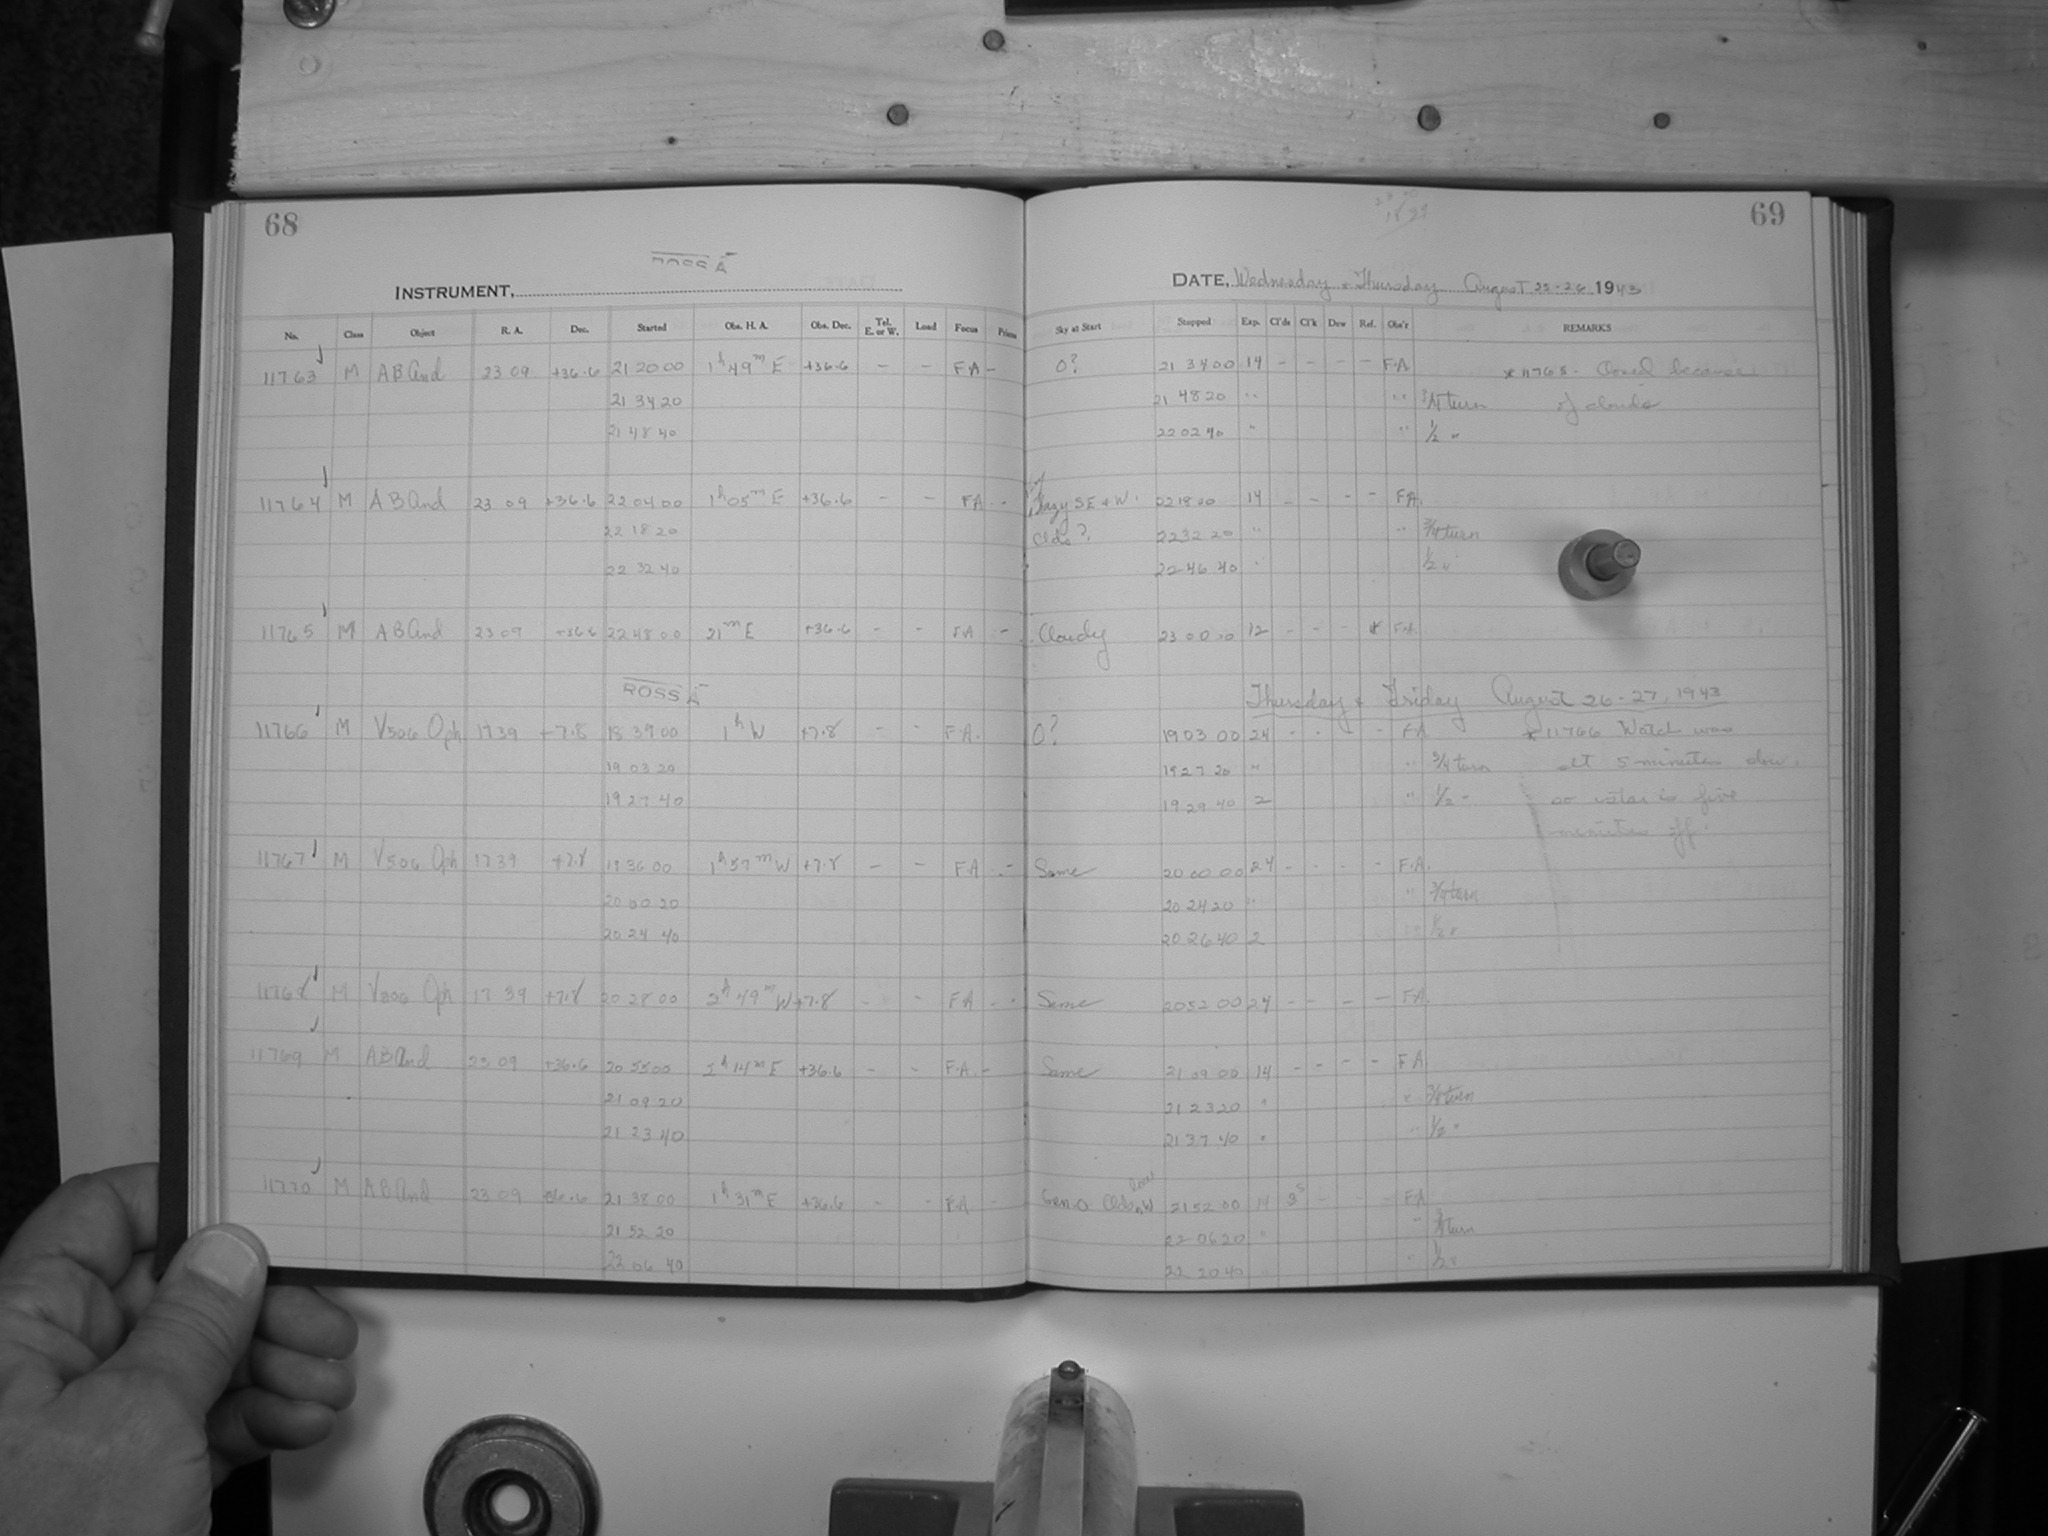 68
69
ROSS A
INSTRUMENT,
DATE, Wednesday & Thursday August 25-26 1943
No. Class Object R. A. Dec. Started Obs. H. A. Obs. Dec. Tel. E. or W. Load Focus Prisms Sky at Start Stopped Exp. Cl'ds Cl'k Dew Ref. Obs'r REMARKS
11763 M AB And 23 09 +36.6 21 20 00 1h 49m E +36.6 - - FA - O? 21 34 00 14 - - - - F.A. * 11765 - Closed because
21 34 20 21 48 20 " " 3/4 turn of clouds
21 48 40 22 02 40 " " 1/2 "
11764 M AB And 23 09 +36.6 22 04 00 1h 05m E +36.6 - - FA - - Hazy SE & W. 22 18 00 14 - - - - FA.
22 18 20 Clds? 22 32 20 " " 3/4 turn
22 32 40 22 46 40 " 1/2 "
11765 M AB And 23 09 +36.6 22 48 00 21m E +36.6 - - FA - Cloudy 23 00 00 12 - - - * F.A.
ROSS A Thursday & Friday August 26-27, 1943
11766 M V506 Oph 17 39 +7.8 18 39 00 1h W +7.8 - - F.A. O? 19 03 00 24 - - - - FA * 11766 Watch was
19 03 20 19 27 20 " " 3/4 turn set 5 minutes slow,
19 27 40 19 29 40 2 " 1/2 " so is five
minutes off.
11767 M V506 Oph 17 39 +7.8 19 36 00 1h 57m W +7.8 - - FA - Same 20 00 00 24 - - - - F.A.
20 00 20 20 24 20 " " 3/4 turn
20 24 40 20 26 40 2 1/2 "
11768 M V506 Oph 17 39 +7.8 20 28 00 2h 49m W +7.8 - - FA - - Same 20 52 00 24 - - - - FA.
11769 M AB And 23 09 +36.6 20 55 00 2h 14m E +36.6 - - F.A. - Same 21 09 00 14 - - - - FA
21 09 20 21 23 20 " " 3/4 turn
21 23 40 21 37 40 " " 1/2 "
11770 M AB And 23 09 +36.6 21 38 00 1h 31m E +36.6 - - F.A - Gen. O Clds low W 21 52 00 14 - - - FA
21 52 20 22 06 20 " " 3/4 turn
22 06 40 22 20 40 " 1/2 "